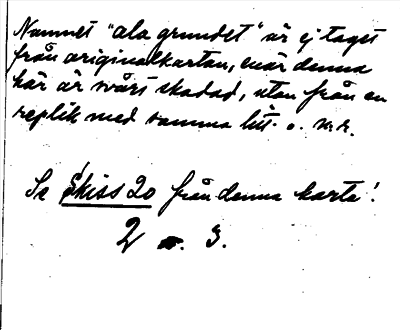 Namnet "ala grundet" är ej taget
från originalkartan, enär denna
här är svårt skadad, utan från en
replik med samma litt. o. n:r.
Se skiss 20 från denna karta!
2 o. 3.